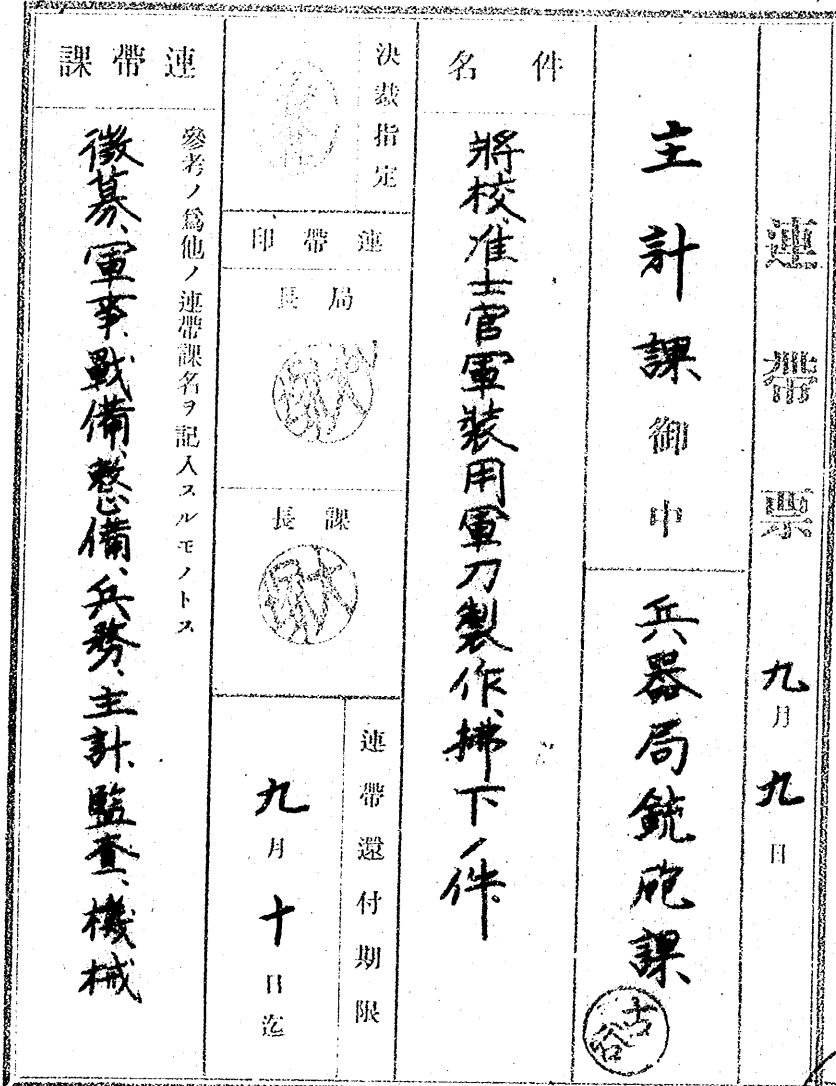 連帶票　九月九日
主計課御中
兵器局銃砲課
古谷
件名
將校准士官軍装用軍刀製作、拂下ノ件
決裁指定
連帶印
局長
課長
連帶還付期限
九月十日迄
連帶課
參考ノ爲他ノ連帶課名ヲ記入スルモノトス
徴募、軍事、戰備、整備、兵務、主計、監査、機械